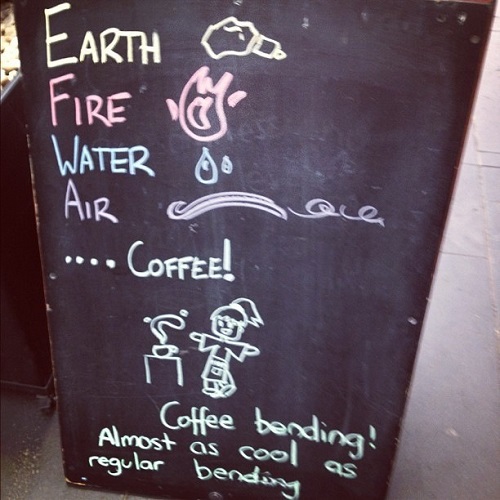 EARTH
FIRE
WATER
AIR
.... COFFEE!
Coffee bending!
Almost as cool as
regular bending